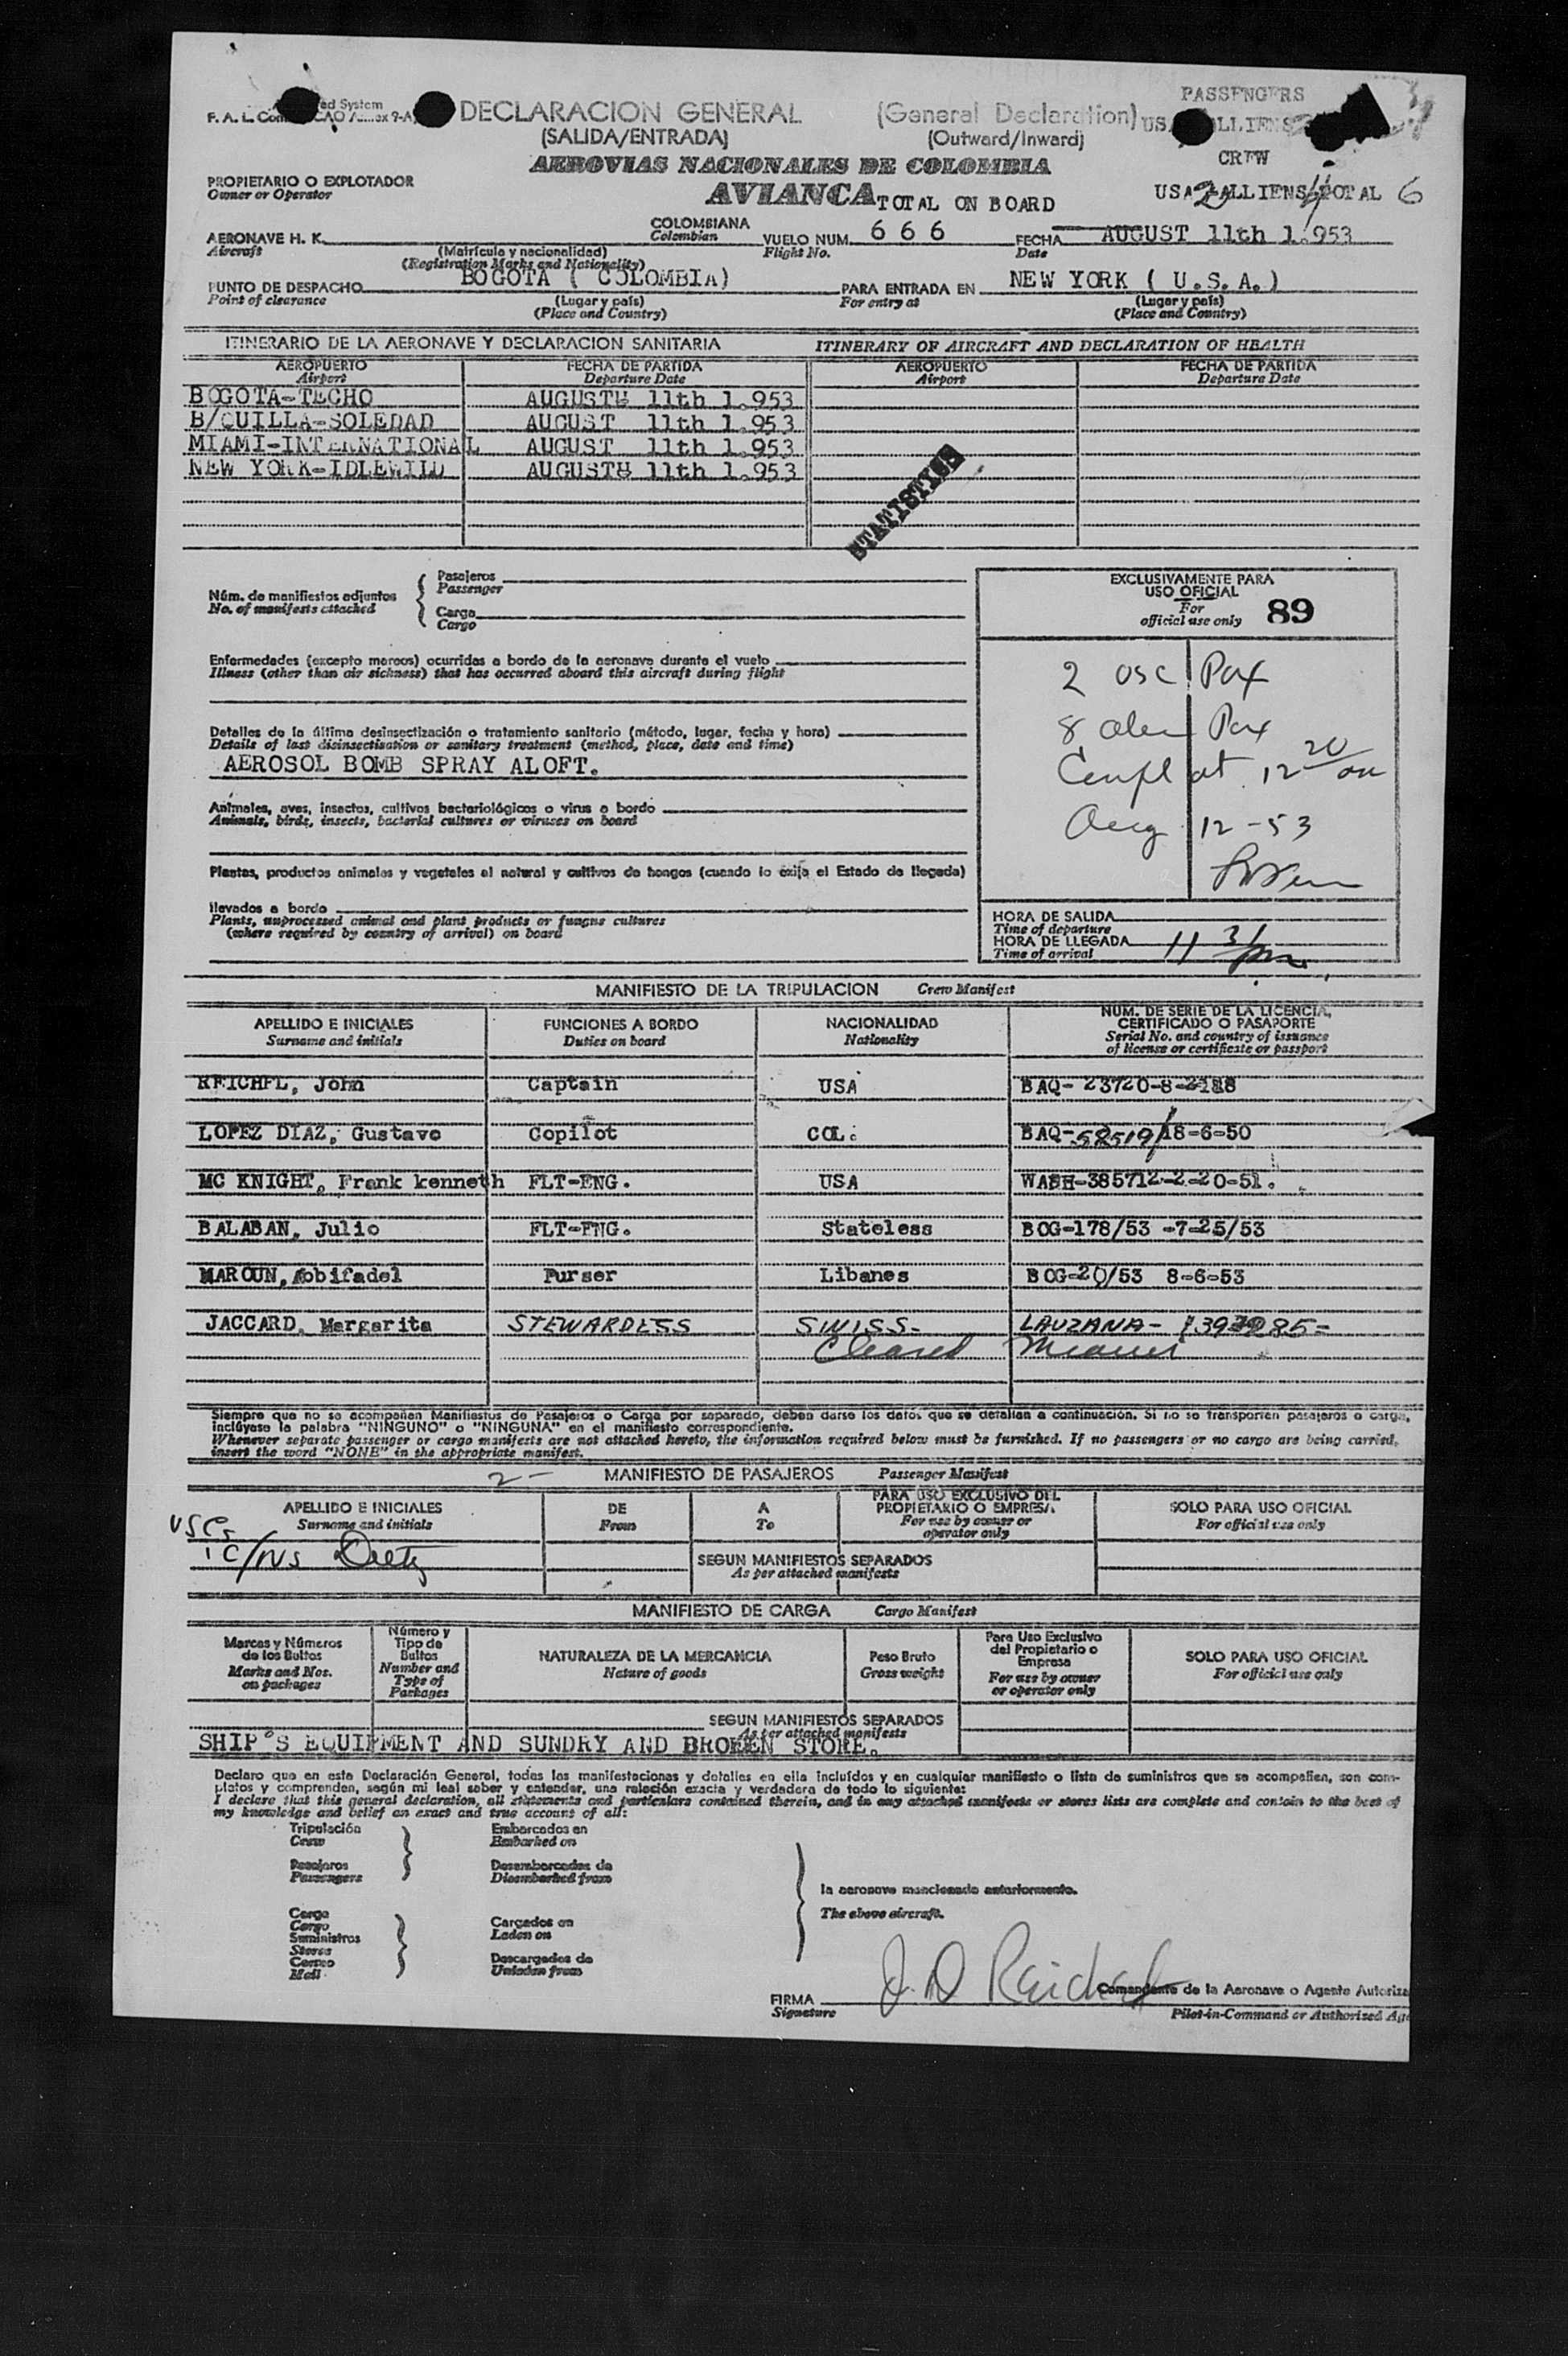 ed System
F. A. L. Com CAO Annex 9-A
DECLARACION GENERAL (General Declaration)
(SALIDA/ENTRADA) (Outward/Inward)
PASSENGERS
US ALLIENS
CREW
USA 2 ALLIENS 4 TOTAL 6
AEROVIAS NACIONALES DE COLOMBIA
AVIANCA TOTAL ON BOARD
PROPIETARIO O EXPLOTADOR
Owner or Operator
AERONAVE H. K. COLOMBIANA VUELO NUM. 666 FECHA AUGUST 11th 1.953
Aircraft (Matrícula y nacionalidad) Colombian Flight No. Date
(Registration Marks and Nationality)
PUNTO DE DESPACHO BOGOTA ( COLOMBIA) PARA ENTRADA EN NEW YORK ( U.S.A.)
Point of clearance (Lugar y país) For entry at (Lugar y país)
(Place and Country) (Place and Country)
ITINERARIO DE LA AERONAVE Y DECLARACION SANITARIA ITINERARY OF AIRCRAFT AND DECLARATION OF HEALTH
AEROPUERTO FECHA DE PARTIDA AEROPUERTO FECHA DE PARTIDA
Airport Departure Date Airport Departure Date
BOGOTA-TECHO AUGUST 11th 1.953
B/QUILLA-SOLEDAD AUGUST 11th 1.953
MIAMI-INTERNATIONAL AUGUST 11th 1.953
NEW YORK-IDLEWILD AUGUST 11th 1.953
STATISTICS
Núm. de manifiestos adjuntos
No. of manifests attached
Pasajeros
Passenger
Carga
Cargo
EXCLUSIVAMENTE PARA
USO OFICIAL
For
official use only 89
2 USC Pax
8 alien Pax
Compl at 12 20 am
Aug 12-53
Enfermedades (excepto mareos) ocurridas a bordo de la aeronave durante el vuelo
Illness (other than air sickness) that has occurred aboard this aircraft during flight
Detalles de la última desinsectización o tratamiento sanitario (método, lugar, fecha y hora)
Details of last disinsectisation or sanitary treatment (method, place, date and time)
AEROSOL BOMB SPRAY ALOFT.
Animales, aves, insectos, cultivos bacteriológicos o virus a bordo
Animals, birds, insects, bacterial cultures or viruses on board
Plantas, productos animales y vegetales al natural y cultivos de hongos (cuando lo exija el Estado de llegada)
llevados a bordo
Plants, unprocessed animal and plant products or fungus cultures
(where required by country of arrival) on board
HORA DE SALIDA
Time of departure
HORA DE LLEGADA 11 31 pm
Time of arrival
MANIFIESTO DE LA TRIPULACION Crew Manifest
APELLIDO E INICIALES FUNCIONES A BORDO NACIONALIDAD NUM. DE SERIE DE LA LICENCIA,
CERTIFICADO O PASAPORTE
Surname and initials Duties on board Nationality Serial No. and country of issuance
of license or certificate or passport
REICHEL, John Captain USA BAQ-23720-8-2188
LOPEZ DIAZ, Gustavo Copilot COL. BAQ-58519/18-6-50
MC KNIGHT, Frank kenneth FLT-ENG. USA WASH-385712-2-20-51.
BALABAN, Julio FLT-ENG. Stateless BOG-178/53 -7-25/53
MAROUN, Nobifadel Purser Libanes BOG-20/53 8-6-53
JACCARD, Margarita STEWARDESS SWISS- LAUZANA-
Cleared Miami
Siempre que no se acompañen Manifiestos de Pasajeros o Carga por separado, deben darse los datos que se detallan a continuación. Si no se transporten pasajeros o carga,
inclúyase la palabra "NINGUNO" o "NINGUNA" en el manifiesto correspondiente.
Whenever separate passenger or cargo manifests are not attached hereto, the information required below must be furnished. If no passengers or no cargo are being carried,
insert the word "NONE" in the appropriate manifest.
2- MANIFIESTO DE PASAJEROS Passenger Manifest
APELLIDO E INICIALES DE A PARA USO EXCLUSIVO DEL
PROPIETARIO O EMPRESA SOLO PARA USO OFICIAL
Surname and initials From To For use by owner or
operator only For official use only
USCs
1 C/NS
SEGUN MANIFIESTOS SEPARADOS
As per attached manifests
MANIFIESTO DE CARGA Cargo Manifest
Marcas y Números
de los Bultos
Marks and Nos.
on packages
Número y
Tipo de
Bultos
Number and
Type of
Packages
NATURALEZA DE LA MERCANCIA
Nature of goods
Peso Bruto
Gross weight
Para Uso Exclusivo
del Propietario o
Empresa
For use by owner
or operator only
SOLO PARA USO OFICIAL
For official use only
SEGUN MANIFIESTOS SEPARADOS
As per attached manifests
SHIP'S EQUIPMENT AND SUNDRY AND BROKEN STORE.
Declaro que en esta Declaración General, todas las manifestaciones y detalles en ella incluídos y en cualquier manifiesto o lista de suministros que se acompañen, son com-
pletos y comprenden, según mi leal saber y entender, una relación exacta y verdadera de todo lo siguiente:
I declare that this general declaration, all statements and particulars contained therein, and in any attached manifests or stores lists are complete and contain to the best of
my knowledge and belief an exact and true account of all:
Tripulación
Crew
Pasajeros
Passengers
Embarcados en
Embarked on
Desembarcados de
Disembarked from
Carga
Cargo
Suministros
Stores
Correo
Mail
Cargados en
Laden on
Descargados de
Unladen from
la aeronave mencionada anteriormente.
The above aircraft.
FIRMA J. D. Reichel Comandante de la Aeronave o Agente Autoriza
Signature Pilot-in-Command or Authorized Age